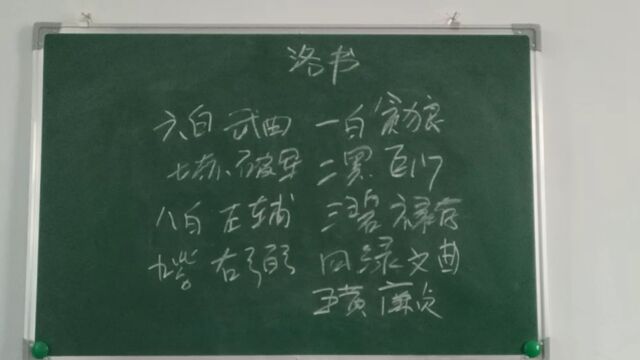 洛书
六白 武曲 一白 贪狼
七赤 破军 二黑 巨门
八白 左辅 三碧 禄存
九紫 右弼 四绿 文曲
五黄 廉贞